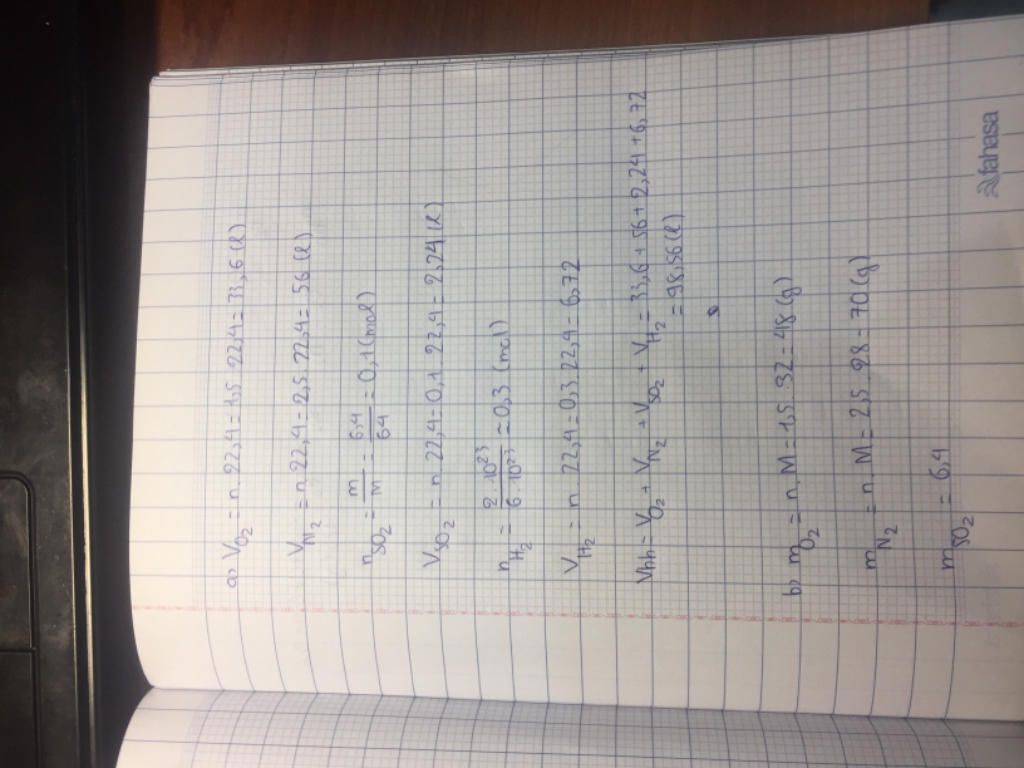 a) V_O₂ = n. 22,4 = 1,5. 22,4 = 33,6 (l)
V_N₂ = n. 22,4 = 2,5. 22,4 = 56 (l)
n_SO₂ = m/M = 6,4/64 = 0,1 (mol)
V_SO₂ = n. 22,4 = 0,1. 22,4 = 2,24 (l)
n_H₂ = 2.10²³/6.10²³ = 0,3 (mol)
V_H₂ = n. 22,4 = 0,3. 22,4 = 6,72
Vhh = V_O₂ + V_N₂ + V_SO₂ + V_H₂ = 33,6 + 56 + 2,24 + 6,72
= 98,56 (l)
b) m_O₂ = n. M = 1,5. 32 = 48 (g)
m_N₂ = n. M = 2,5. 28 = 70 (g)
m_SO₂ = 6,4
fahasa